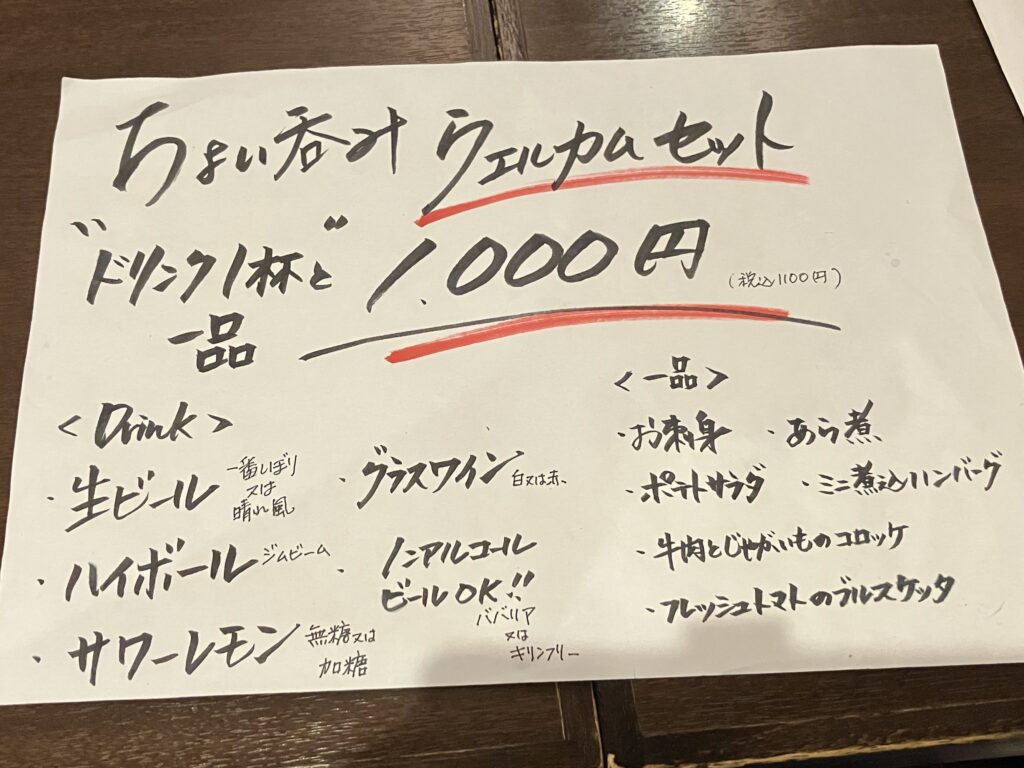 ちょい呑み ウェルカムセット
"ドリンク1杯と"
一品
1.000円
(税込1100円)
<Drink>
・生ビール 一番しぼり
又は
晴れ風
・ハイボール ジムビーム
・サワーレモン 無糖又は
加糖
・グラスワイン 白又は赤
・ノンアルコール
ビールOK!!
ババリア
又は
キリンフリー
<一品>
・お刺身 ・あら煮
・ポテトサラダ ・ミニ煮込ハンバーグ
・牛肉とじゃがいものコロッケ
・フレッシュトマトのブルスケッタ